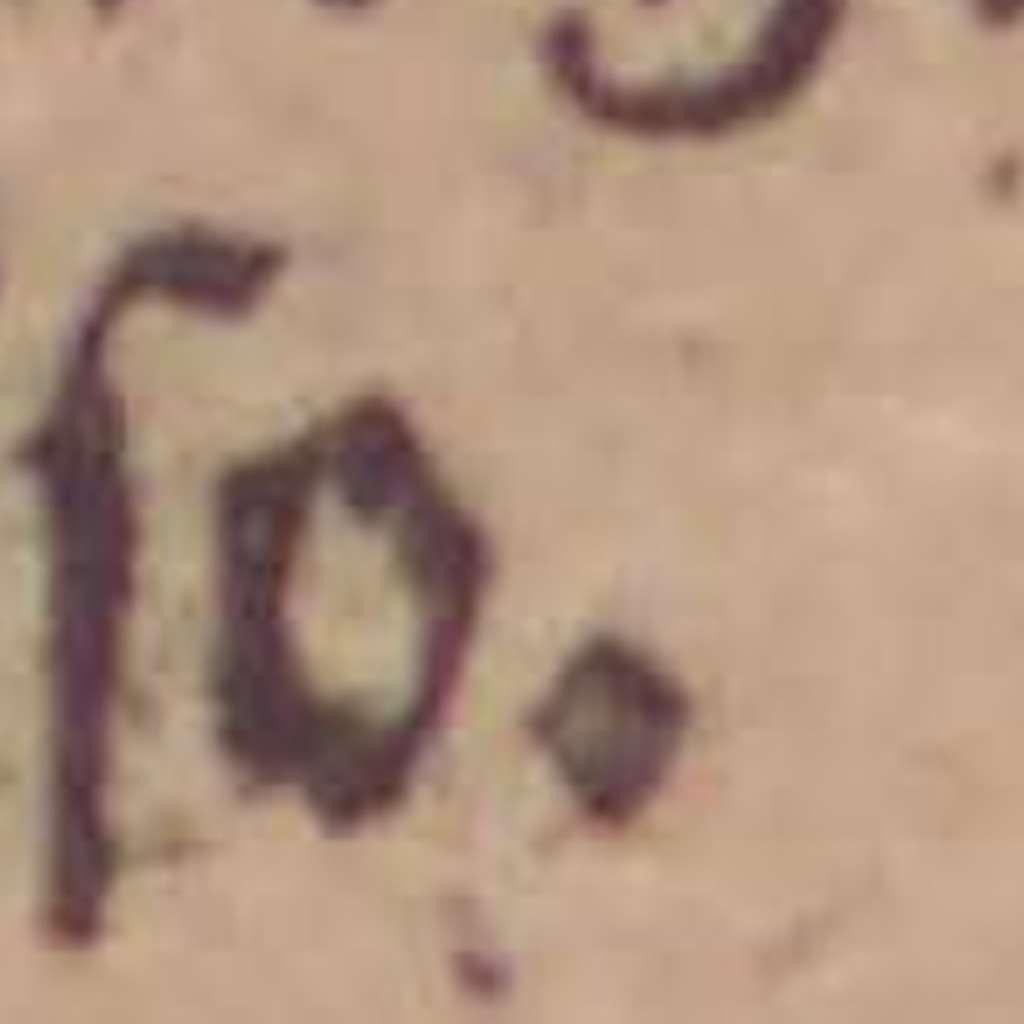 ſo.